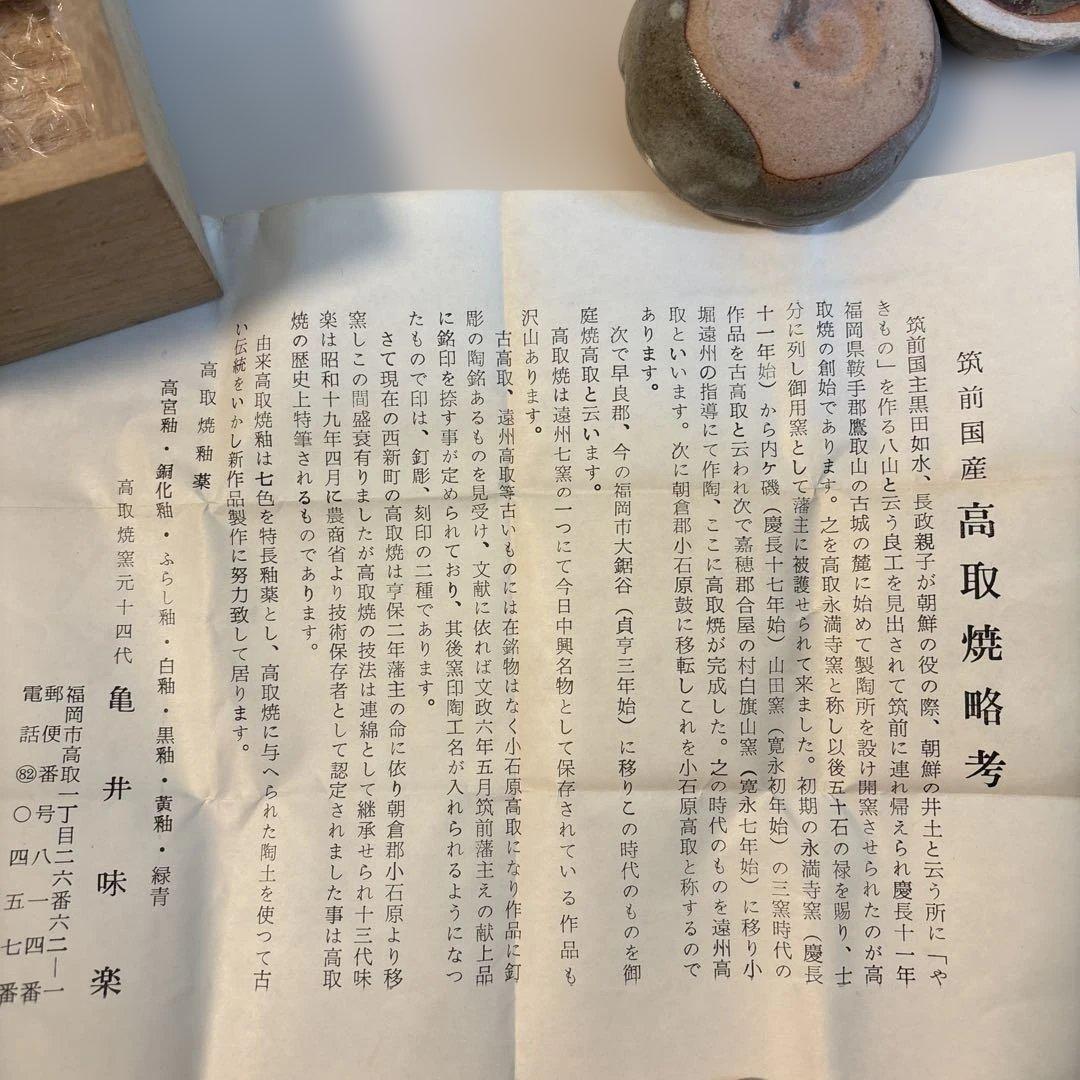 筑前国産 高取焼略考
筑前国主黒田如水、長政親子が朝鮮の役の際、朝鮮の井土と云う所に「や
きもの」を作る八山と云う良工を見出されて筑前に連れ帰えられ慶長十一年
福岡県鞍手郡鷹取山の古城の麓に始めて製陶所を設け開窯させられたのが高
取焼の創始であります。之を高取永満寺窯と称し以後五十石の禄を賜り、士
分に列し御用窯として藩主に被護せられて来ました。初期の永満寺窯(慶長
十一年始)から内ケ磯(慶長十七年始)山田窯(寛永初年始)の三窯時代の
作品を古高取と云われ次で嘉穂郡合屋の村白旗山窯(寛永七年始)に移り小
堀遠州の指導にて作陶、ここに高取焼が完成した。之の時代のものを遠州高
取といいます。次に朝倉郡小石原鼓に移転しこれを小石原高取と称するので
あります。
次で早良郡、今の福岡市大鋸谷(貞亨三年始)に移りこの時代のものを御
庭焼高取と云います。
高取焼は遠州七窯の一つにて今日中興名物として保存されている作品も
沢山あります。
古高取、遠州高取等古いものには在銘物はなく小石原高取になり作品に釘
彫の陶銘あるものを見受け、文献に依れば文政六年五月筑前藩主えの献上品
に銘印を捺す事が定められており、其後窯印陶工名が入れられるようになつ
たもので印は、釘彫、刻印の二種であります。
さて現在の西新町の高取焼は亨保二年藩主の命に依り朝倉郡小石原より移
窯しこの間盛衰有りましたが高取焼の技法は連綿として継承せられ十三代味
楽は昭和十九年四月に農商省より技術保存者として認定されました事は高取
焼の歴史上特筆されるものであります。
由来高取焼釉は七色を特長釉薬とし、高取焼に与へられた陶土を使つて古
い伝統をいかし新作品製作に努力致して居ります。
高取焼釉薬
高宮釉・銅化釉・ふらし釉・白釉・黒釉・黄釉・緑青
高取焼窯元十四代 亀井味楽
福岡市高取一丁目二六番六二―一
郵便番号八一四
電話㊷〇四五七番